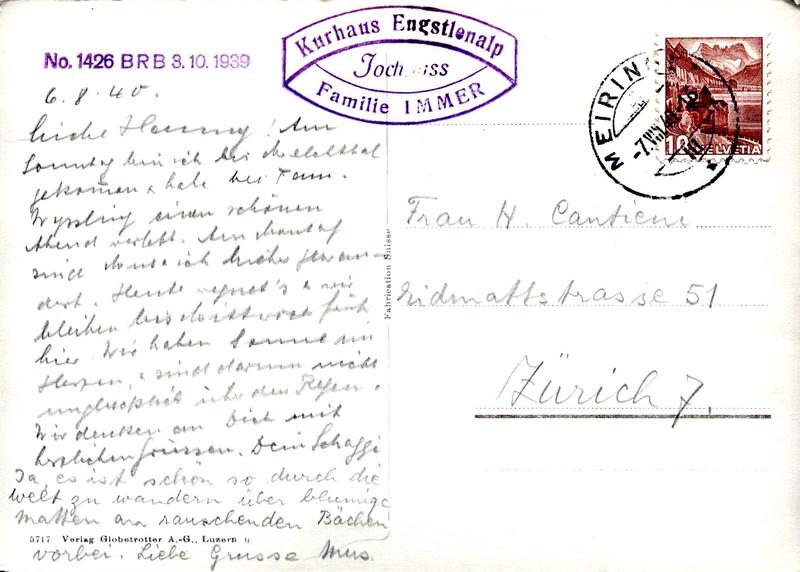 No. 1426 BRB 3.10.1939
Kurhaus Engstlenalp
Joch
Familie IMMER
MEIRINGEN
-7.VIII.40.-12
10 HELVETIA
6.8.40.
Liebe Hanny! Am
Sonntag bin ich bis Melchtal
gekommen & habe bei Fam.
Wyssling einen schönen
Abend verlebt. Am Montag
sind & ich hieher gewan-
dert. Heute regnet's & wir
bleiben bis Mittwoch früh
hier. Wir haben Sonne im
Herzen, & sind darum nicht
unglücklich über den Regen.
Wir denken an Dich mit
herzlichen Grüssen. Dein Schaggi
Ja, es ist schön so durch die
Welt zu wandern über blumige
Matten an rauschenden Bächen
vorbei. Liebe Grüsse Mus.
5717 Verlag Globetrotter A.-G., Luzern
Fabrication Suisse
Frau H. Cantieni
Eidmattstrasse 51
Zürich 7.